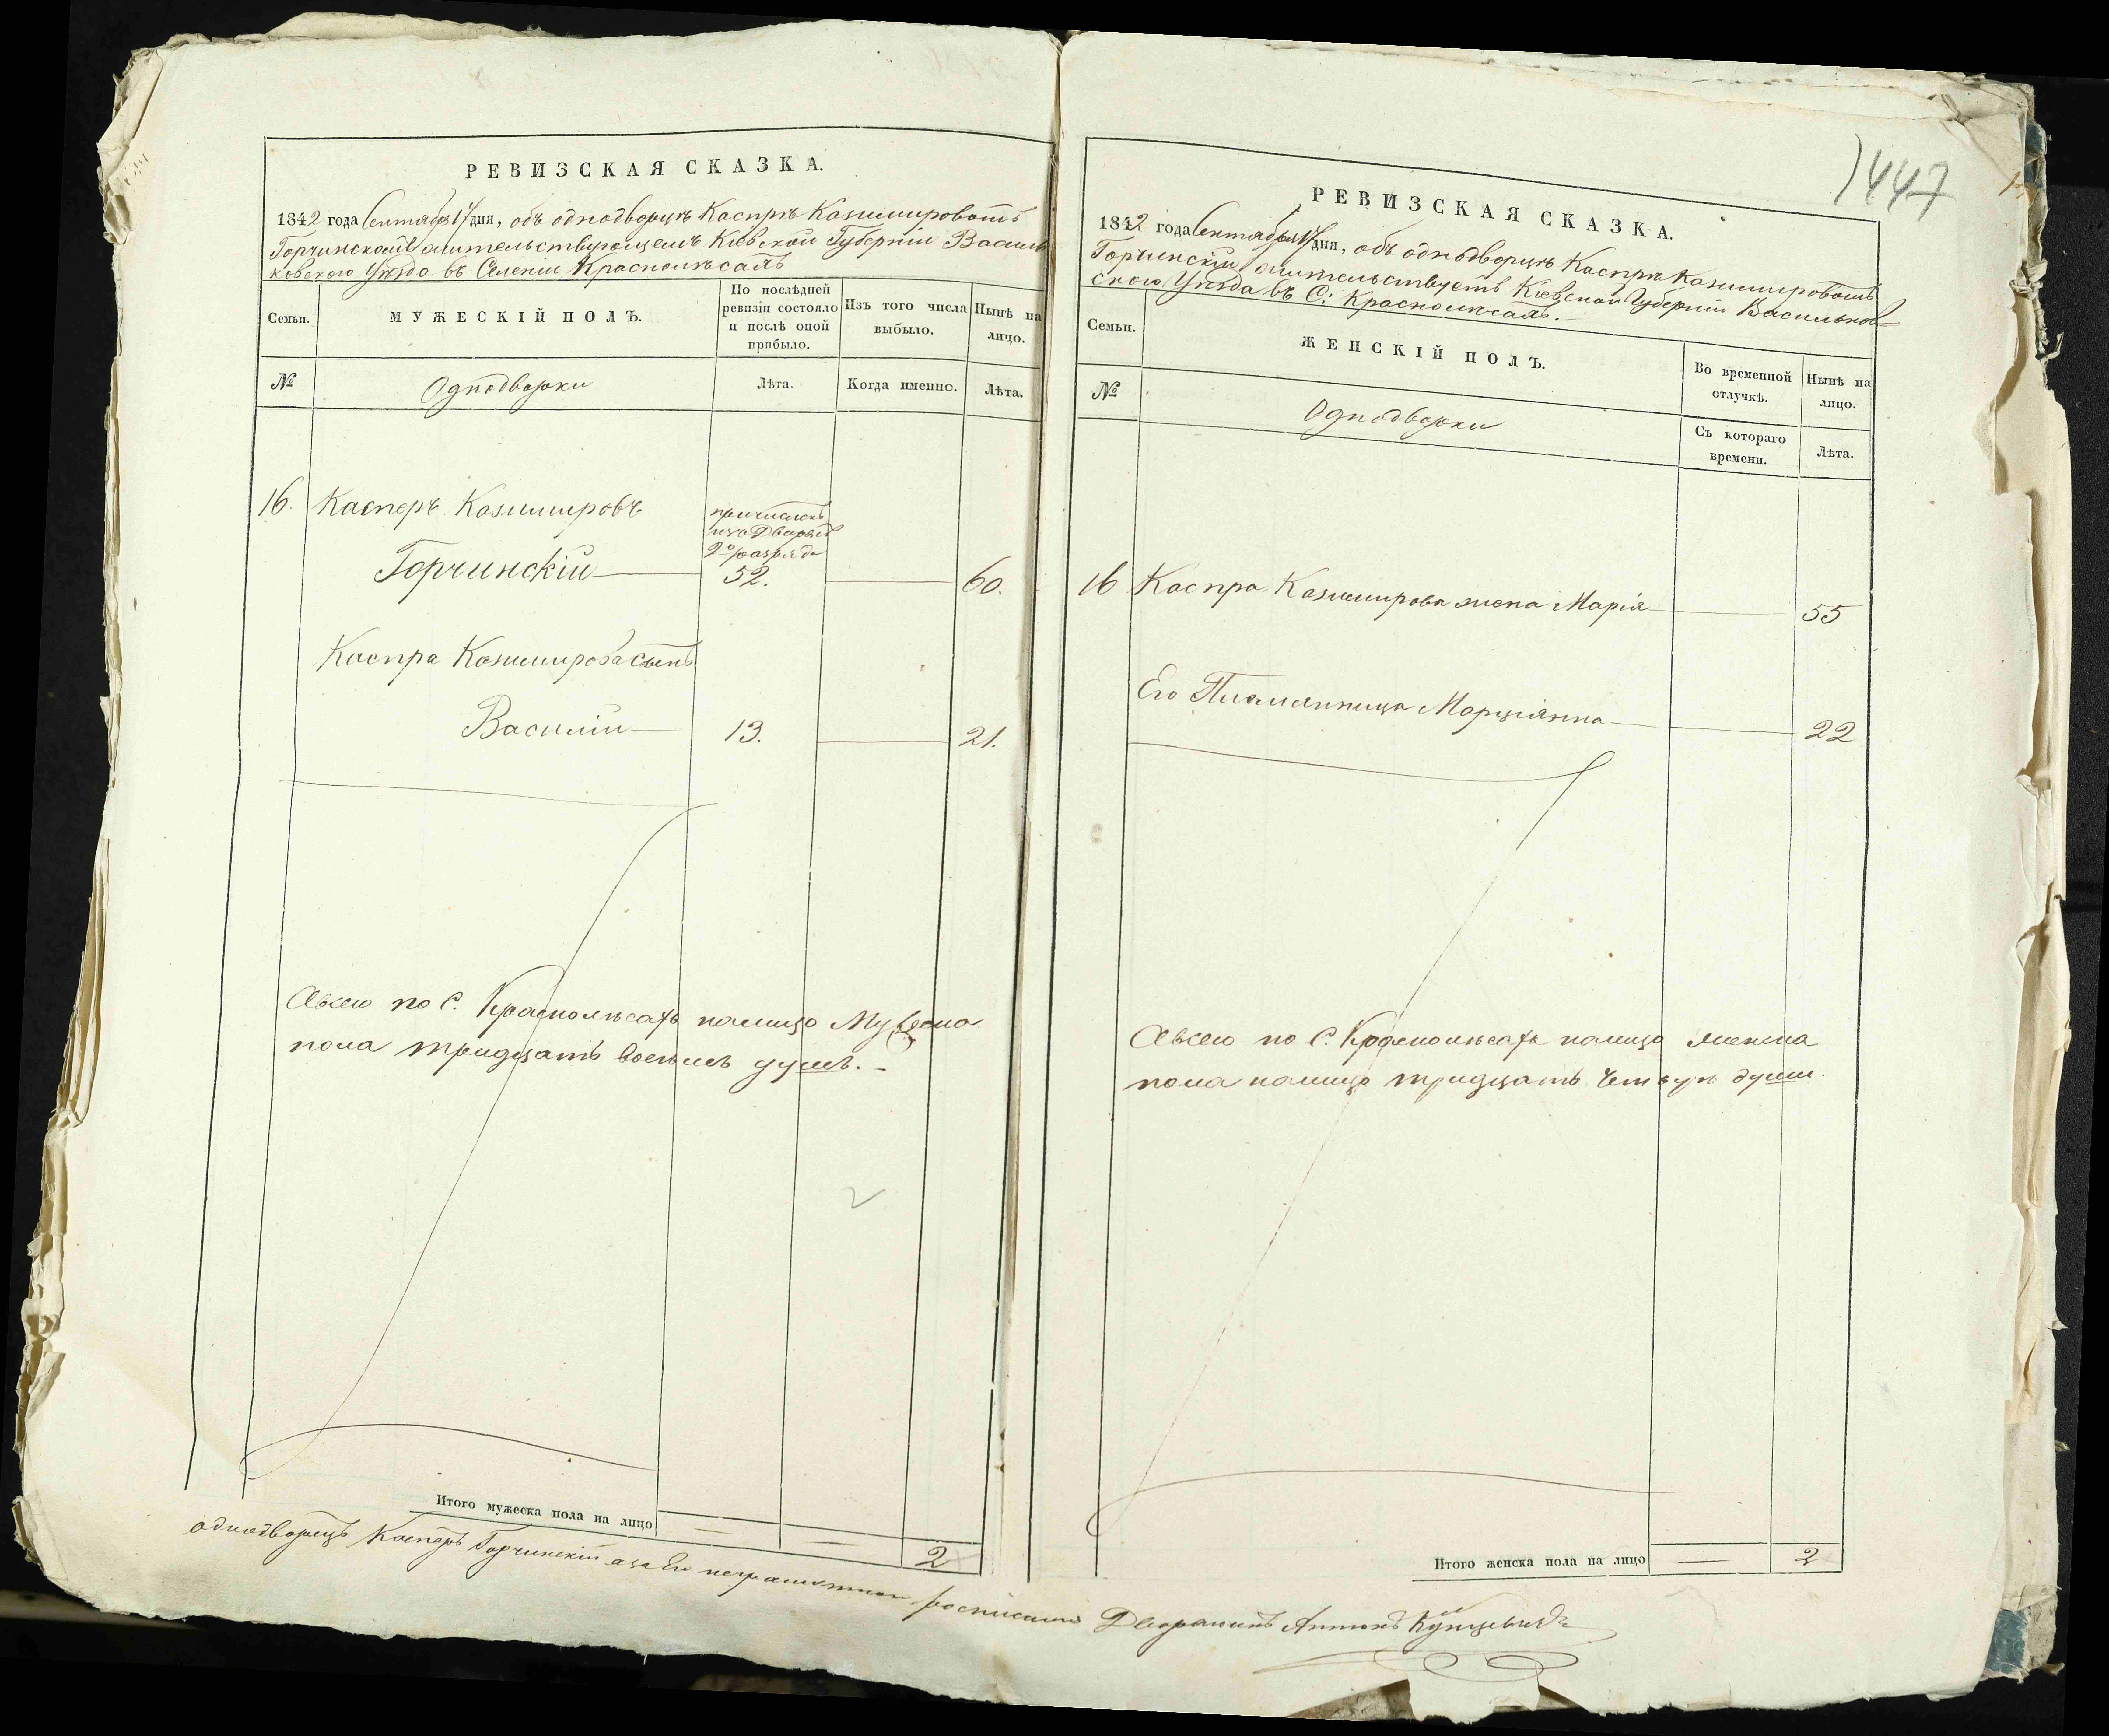 РЕВИЗСКАЯ СКАЗКА.
1842 года Сентября 17 дня, объ однодворцѣ Каспрѣ Казимировомъ
Горчинскомъ жительствующемъ Кіевской Губерніи Василь
ковского Уѣзда въ Селеніи Красномъ
Семьи.
МУЖЕСКІЙ ПОЛЪ.
По послѣдней ревизіи состояло и послѣ оной прибыло.
Изъ того числа выбыло.
Нынѣ на лицо.
№
Однодворки
Лѣта.
Когда именно.
Лѣта.
16. Касперъ Казимировъ
причисленъ
изъ Дворянъ
2го разряда
Горчинскій 52. 60.
Каспра Казимирова сынъ
Василій 13. 21.
А всего по С. налицо Мужеска
пола тридцать восемь душъ.
Итого мужеска пола на лицо
2
РЕВИЗСКАЯ СКАЗКА.
1842 года Сентября 17 дня, объ однодворцѣ Каспрѣ Казимировомъ
Горчинскій жительствуетъ Кіевской Губерніи Васильков
ского Уѣзда въ С:
1447
Семьи.
ЖЕНСКІЙ ПОЛЪ.
Во временной отлучкѣ.
Нынѣ на лицо.
№
Однодворки
Съ котораго времени.
Лѣта.
16 Каспра Казимирова жена Марія 55
Его Племянница Марціянна 22
А всего по С. налицо женска
пола налицо тридцать четыре души.
Итого женска пола на лицо
2
однодворецъ Касперъ Горчинскій а за Его неграмотного росписался Дворянинъ Антонъ